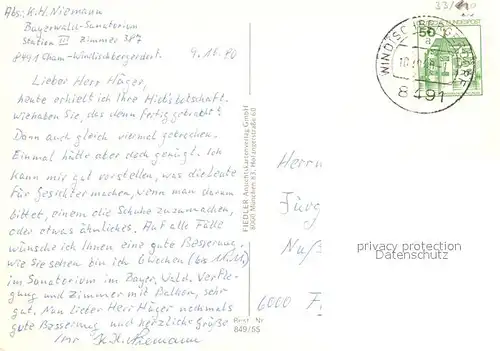 Abs: K.H. Niemann
Bayerwald-Sanatorium
Station III Zimmer 387
8491 Cham-Windischbergerdorf. 9.10.80
Lieber Herr Häger,
heute erhielt ich Ihre Hiobsbotschaft.
wie haben Sie, das denn fertig gebracht?
Dann auch gleich viermal gebrochen.
Einmal hätte aber doch genügt. Ich
kann mir gut vorstellen, was die Leute
für Gesichter machen, wenn man darum
bittet, einem die Schuhe zuzumachen,
oder etwas ähnliches. Auf alle Fälle
wünsche ich Ihnen eine gute Besserung.
Wie Sie sehen bin ich in (bis
im Sanatorium im Bayer. Wald. Verfle-
gung und Zimmer mit Balkon, sehr
gut. Nun lieber Herr Häger nochmals
gute Besserung und herzliche Grüße
Ihr K.H. Niemann
FIEDLER Ansichtskartenverlag GmbH
8000 München 83,
Best. Nr.
849/55
33/
50
BUNDESPOST
8491
Herrn
Jürg
Nuß
6000 F
privacy protection
watermark